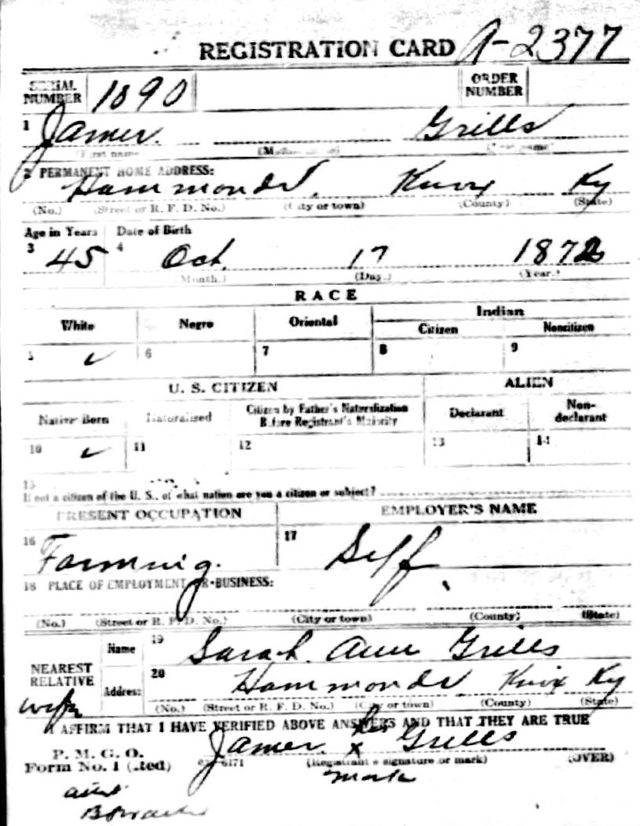 REGISTRATION CARD A-2377
SERIAL NUMBER 1890
ORDER NUMBER
1 James Grills
(First name) (Middle name) (Last name)
2 PERMANENT HOME ADDRESS:
Hammonds, Knox Ky
(No.) (Street or R. F. D. No.) (City or town) (County) (State)
Age in Years Date of Birth
3 45 4 Oct. 17 1872
(Month.) (Day.) (Year.)
RACE
White Negro Oriental Indian
Citizen Noncitizen
5 ✓ 6 7 8 9
U. S. CITIZEN ALIEN
Native Born Naturalized Citizen by Father's Naturalization Before Registrant's Majority Declarant Non-declarant
10 ✓ 11 12 13 14
15
If not a citizen of the U. S., of what nation are you a citizen or subject?
PRESENT OCCUPATION EMPLOYER'S NAME
16 Farming. 17 Self
18 PLACE OF EMPLOYMENT OR BUSINESS:
(No.) (Street or R. F. D. No.) (City or town) (County) (State)
NEAREST RELATIVE Name 19 Sarah Ann Grills
wife Address: 20 Hammonds Knox Ky
(No.) (Street or R. F. D. No.) (City or town) (County) (State)
I AFFIRM THAT I HAVE VERIFIED ABOVE ANSWERS AND THAT THEY ARE TRUE
P. M. G. O.
Form No. 1 (Red)
James his x Grills
(Registrant's signature or mark) (OVER)
mark